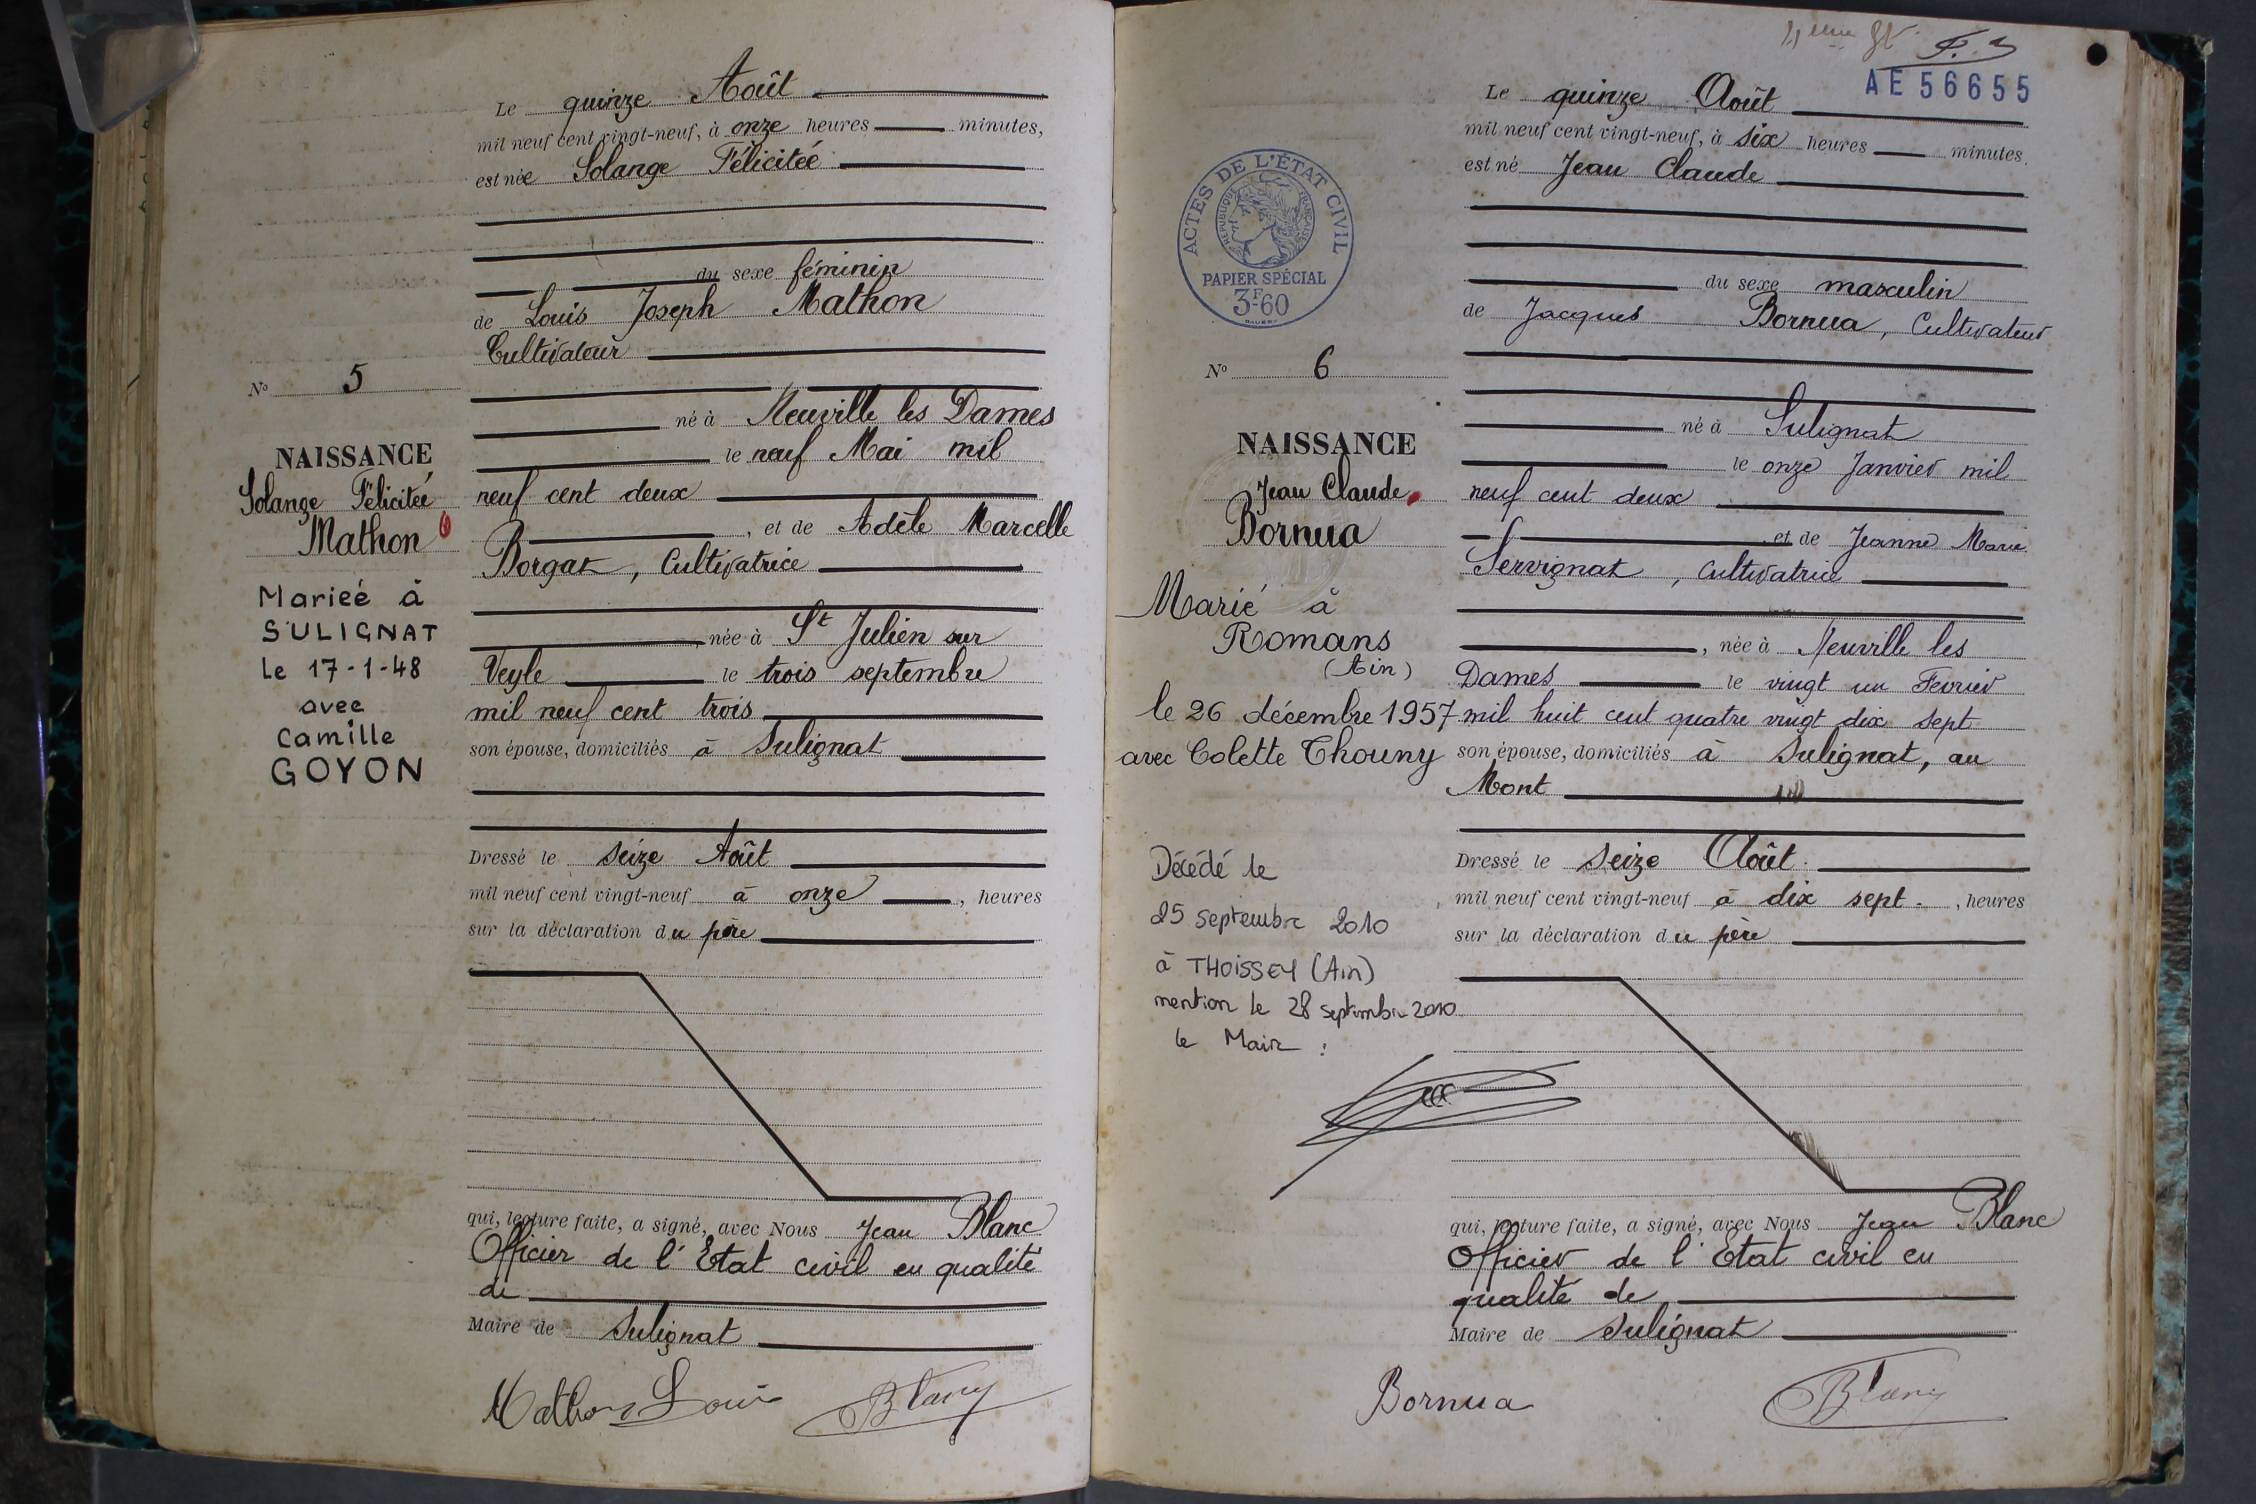 Le quinze Août
mil neuf cent vingt-neuf, à onze heures minutes,
est née Solange Félicitée
du sexe féminin
de Louis Joseph Mathon
Cultivateur
né à Neuville les Dames
le neuf Mai mil
neuf cent deux
, et de Adèle Marcelle
Borgat, Cultivatrice
, née à St Julien sur
Veyle le trois septembre
mil neuf cent trois
son épouse, domiciliés à Sulignat
Dressé le seize Août
mil neuf cent vingt-neuf à onze , heures
sur la déclaration du père
qui, lecture faite, a signé, avec Nous Jean Blanc
Officier de l'Etat civil en qualité
de
Maire de Sulignat
Mathon Louis Blanc
No 5
NAISSANCE
Solange Félicitée
Mathon
Mariée à
SULIGNAT
Le 17-1-48
avec
Camille
GOYON
AE 56655
Le quinze Août
mil neuf cent vingt-neuf, à six heures minutes,
est né Jean Claude
du sexe masculin
de Jacques Bornua, Cultivateur
né à Sulignat
le onze Janvier mil
neuf cent deux
et de Jeanne Marie
Servignat, cultivatrice
, née à Neuville les
Dames le vingt un Fevrier
mil huit cent quatre vingt dix sept
son épouse, domiciliés à Sulignat, au
Mont
Dressé le seize Août.
mil neuf cent vingt-neuf à dix sept. , heures
sur la déclaration du père
qui, lecture faite, a signé, avec Nous Jean Blanc
Officier de l'Etat civil en
qualité de
Maire de Sulignat
Bornua Blanc
ACTES DE L'ÉTAT CIVIL
RÉPUBLIQUE FRANÇAISE
PAPIER SPÉCIAL
3F-60
No 6
NAISSANCE
Jean Claude
Bornua
Marié à
Romans
(Ain)
le 26 décembre 1957
avec Colette Thouny
Décédé le
25 septembre 2010
à THOISSEY (Ain)
mention le 28 septembre 2010
le Maire :